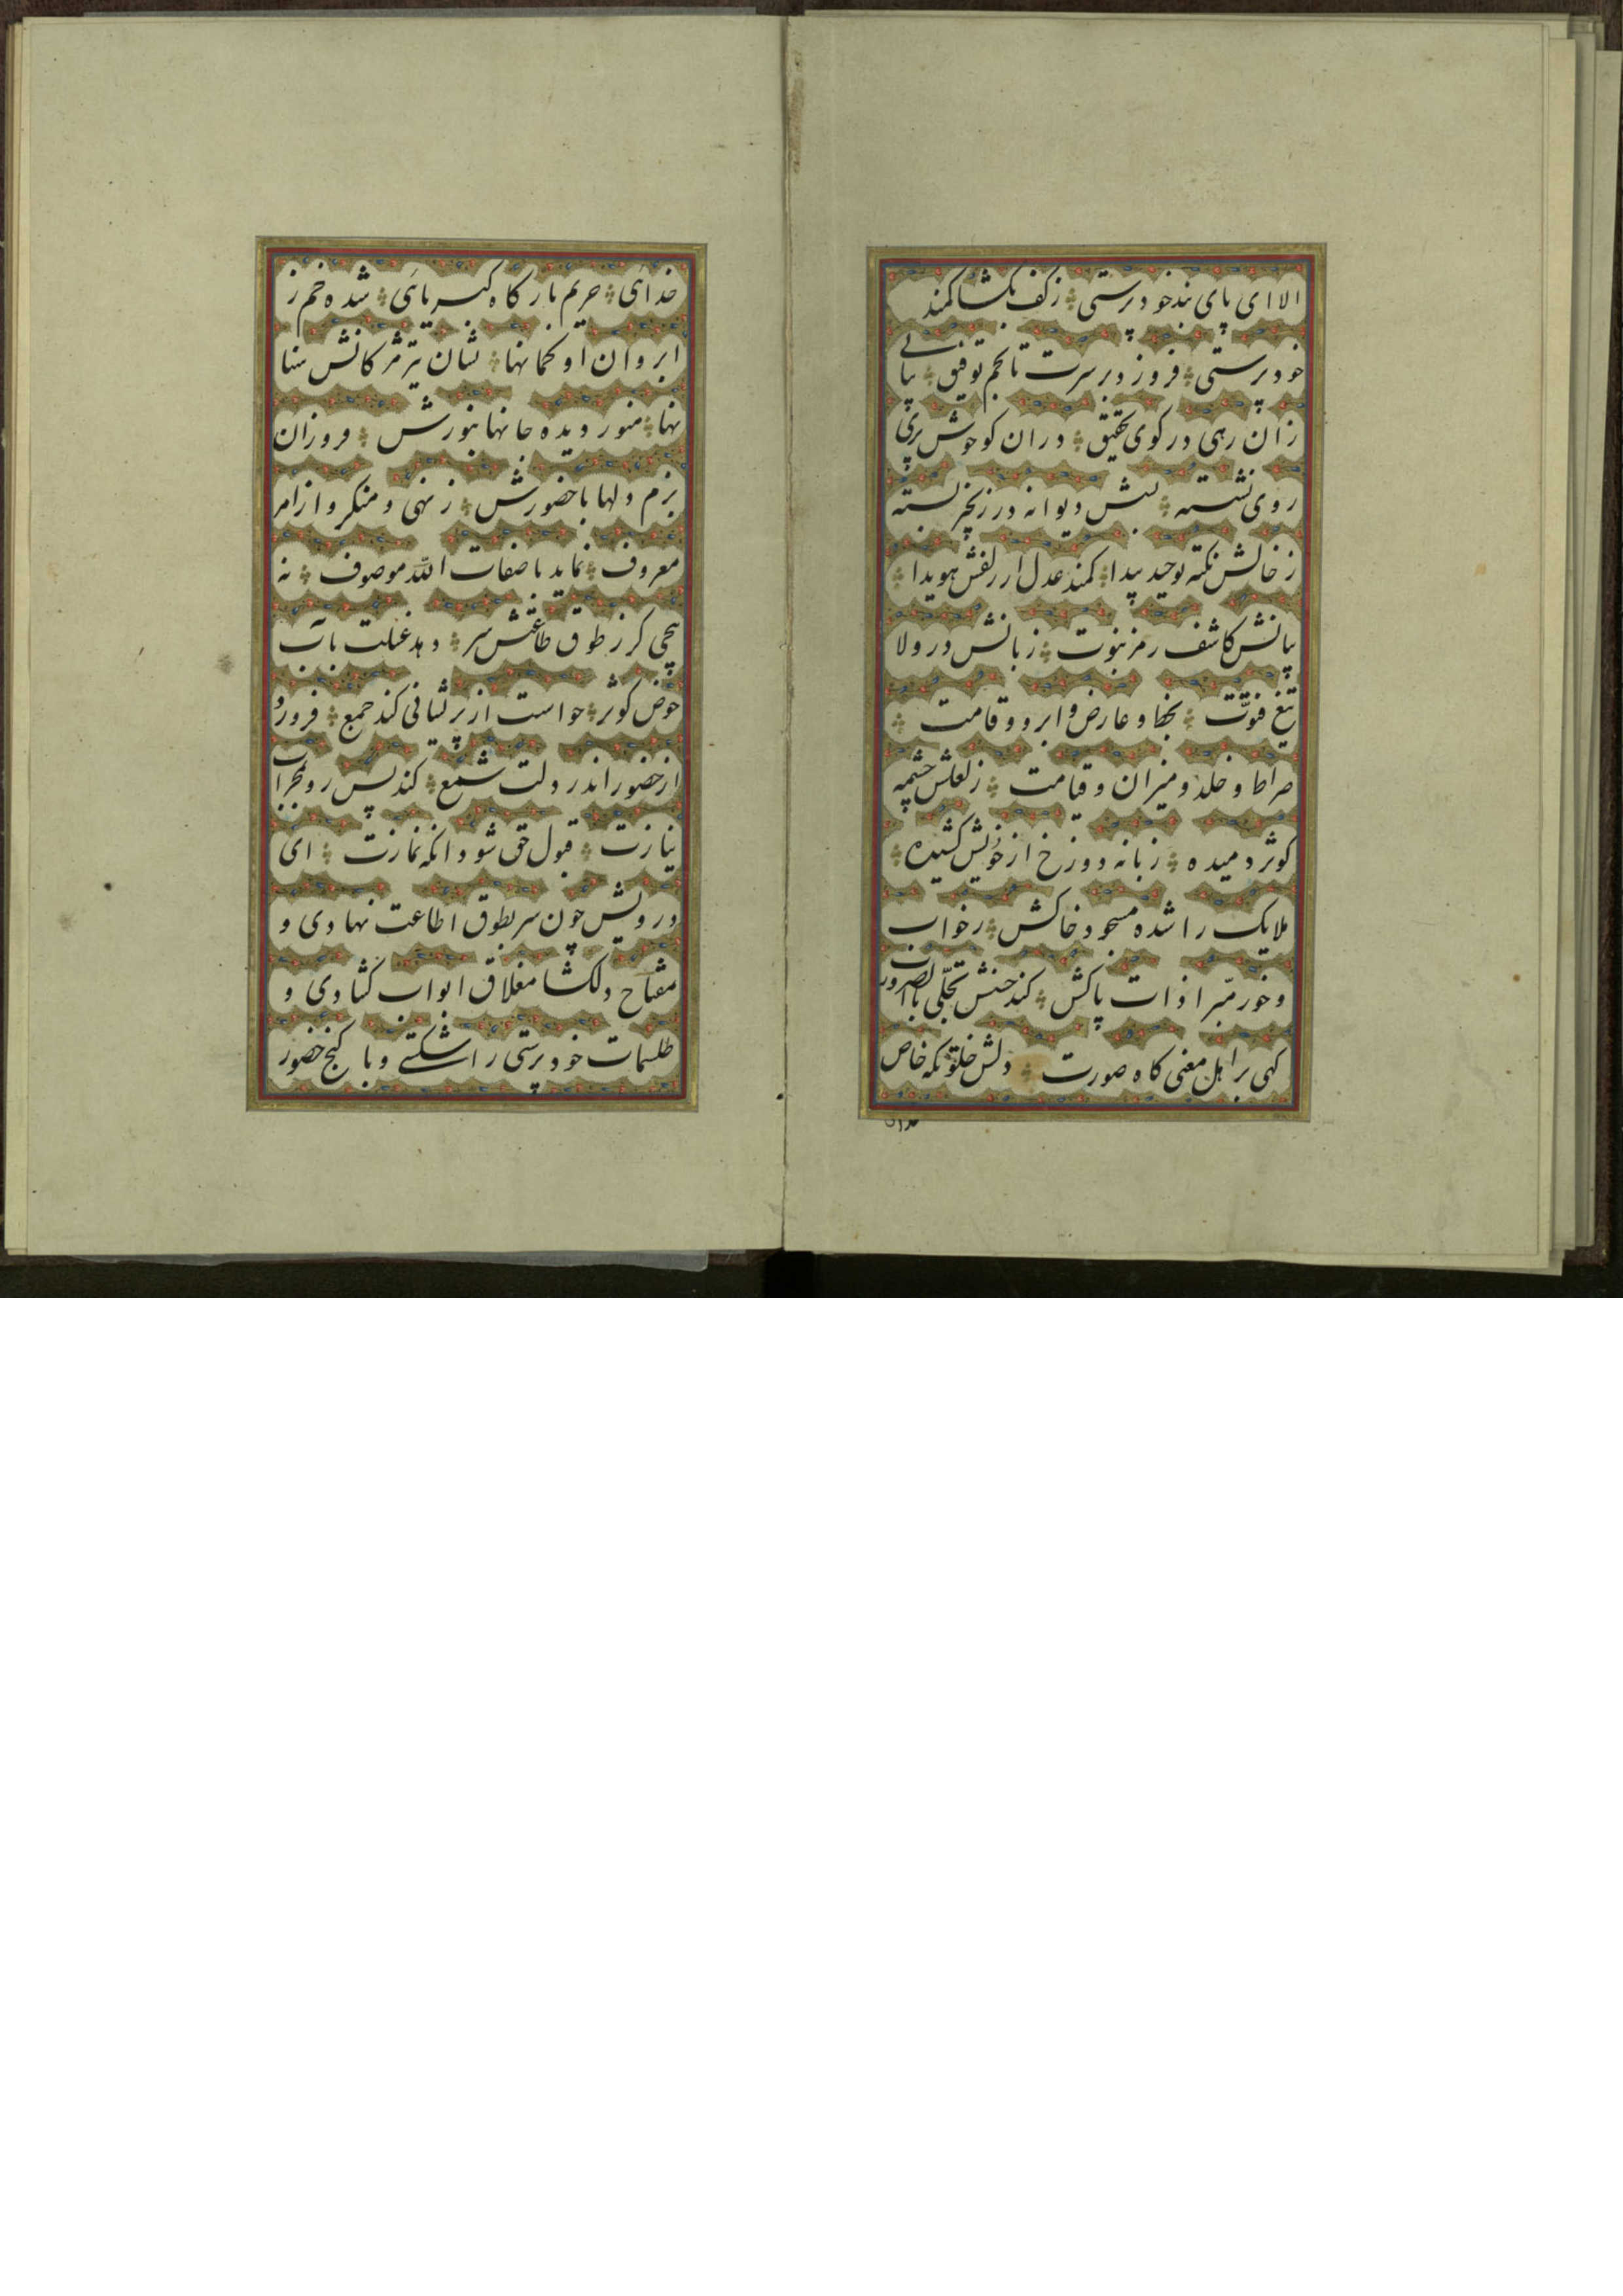 الا ای پای بند خود پرستی ؞ ز کف بکشا کمند
خود پرستی ؞ فروزد بر سرت تا نجم توفیق ؞ بیابی
زان رهی در کوی تحقیق ؞ در ان کو حوش پری
روی نشسته ؞ بسش دیوانه در زنجیر بسته
ز خالش نکته توحید پیدا ؞ کمند عدل از زلفش هویدا ؞
بیانش کاشف رمز نبوت ؞ زبانش در ولا
تیغ فتوّت ؞ بخط و عارض و ابرو و قامت ؞
صراط و خلد و میزان و قیامت ؞ ز لعلش چشمه
کوثر دمیده ؞ زبانه دوزخ از خویش کشیده ؞
ملایک را شده مسجود خاکش ؞ ز خواب
و خور مبّرا ذات پاکش ؞ کند حسنش تجلّی بالضرورت
کهی بر اهل معنی کاه صورت ؞ دلش خلوتکه خاص
خدائی ؞ حریم بارکاه کبریائی ؞ شده خم ز
ابروان او کمانها ؞ نشان تیر مژکانش سنا
نها ؞ منور دیده جانها بنورش ؞ فروزان
بزم دلها با حضورش ؞ ز نهی و منکر و از امر
معروف ؞ نماید با صفات الله موصوف ؞ نه
پیچی کر ز طوق طاعتش سر ؞ دهد غسلت بآب
حوض کوثر ؞ حواست از پریشانی کند جمع ؞ فروزد
از حضور اندر دلت شمع ؞ کند پس رو بمحراب
نیازت ؞ قبول حق شود انکه نمازت ؞ ای
درویش چون سر بطوق اطاعت نهادی و
مفتاح دلکشا مغلاق ابواب کشادی و
طلسمات خود پرستی را شکستی و با کنج حضور